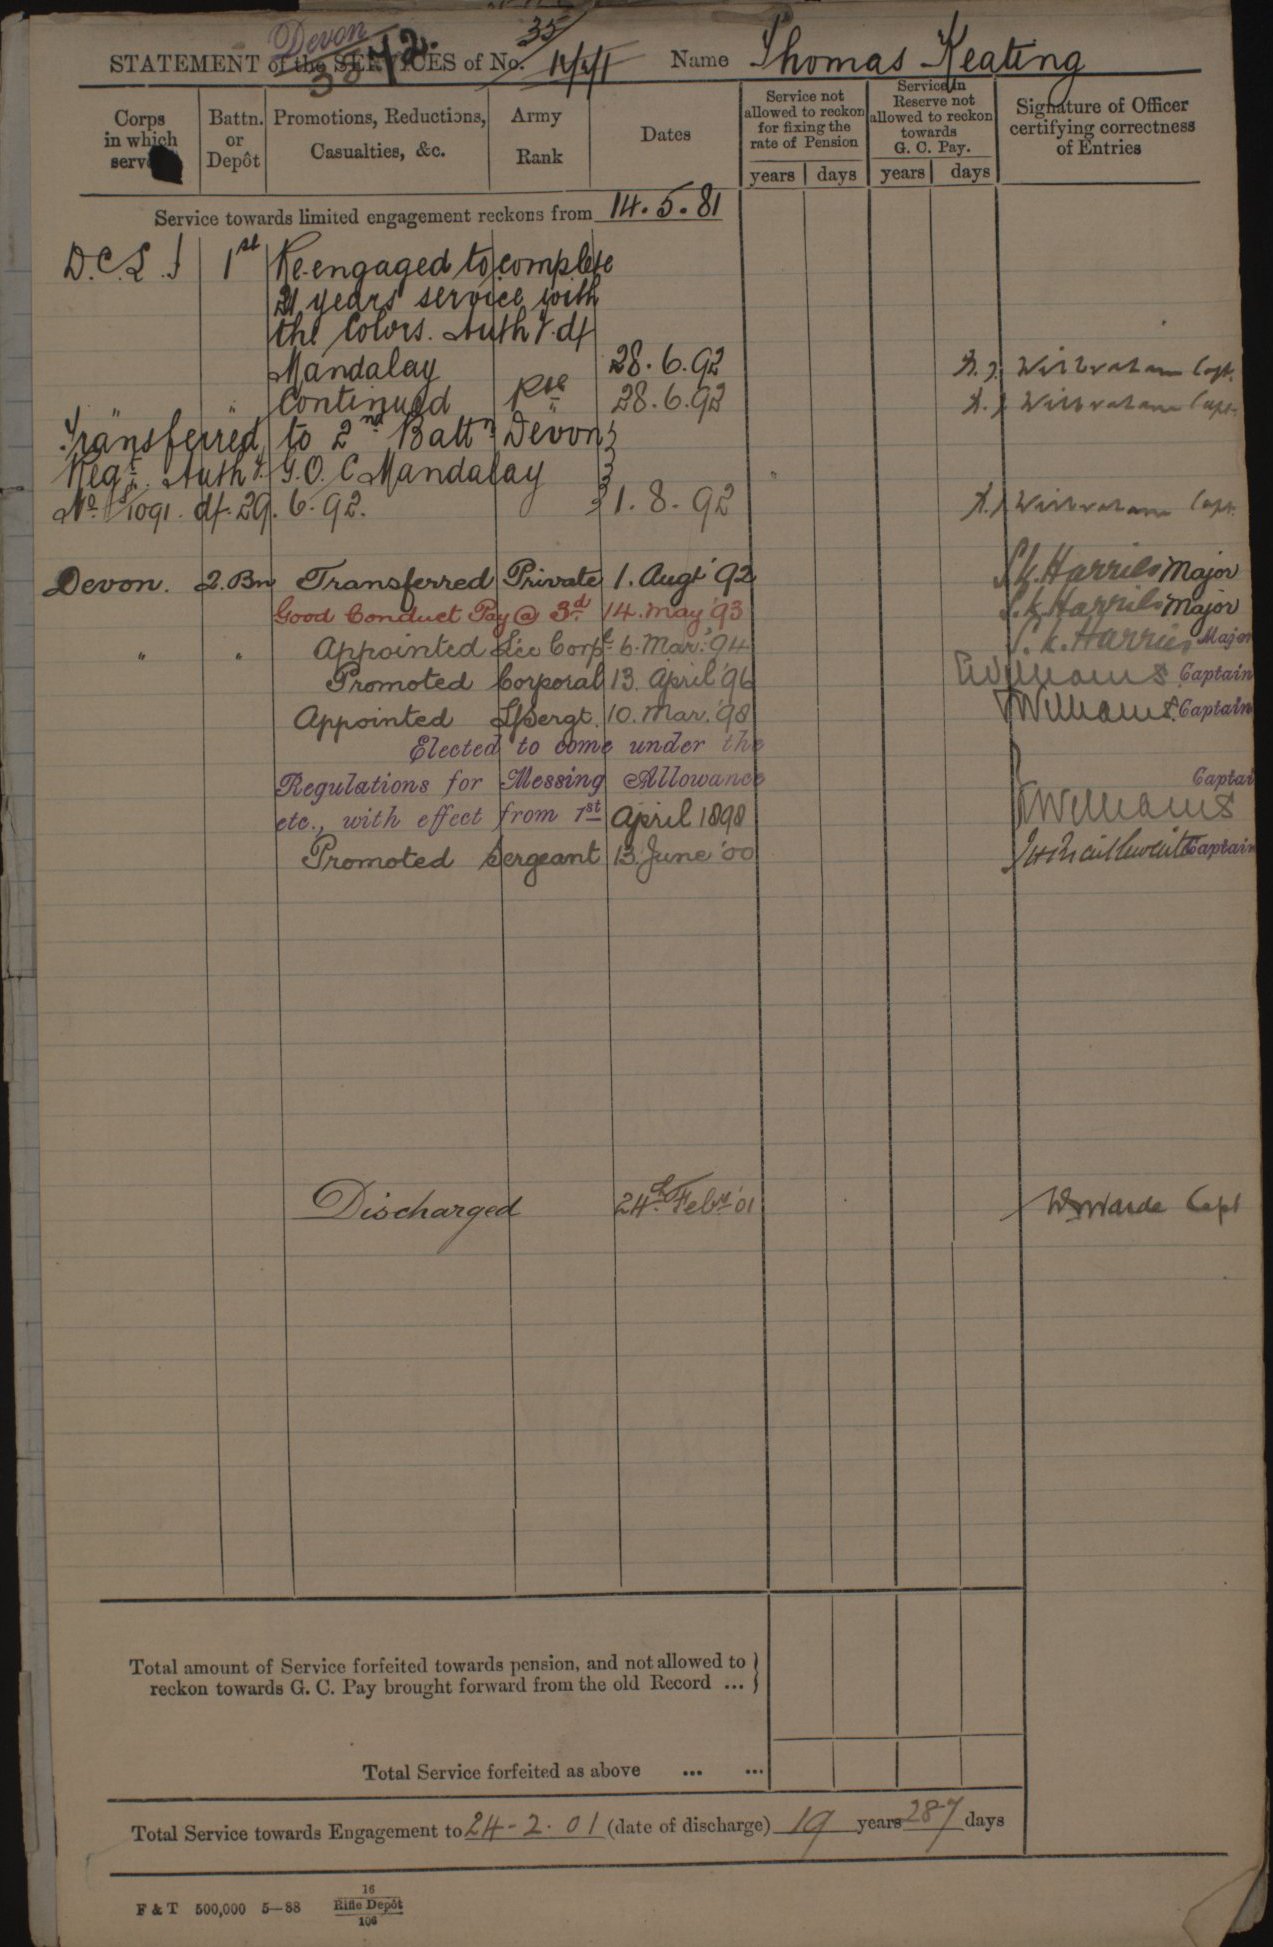 Devon
3342. 35
STATEMENT of the SERVICES of No. Name Thomas Keating
Corps in which served
Battn. or Depôt
Promotions, Reductions, Casualties, &c.
Army Rank
Dates
Service not allowed to reckon for fixing the rate of Pension
years days
Service in Reserve not allowed to reckon towards G. C. Pay.
years days
Signature of Officer certifying correctness of Entries
Service towards limited engagement reckons from 14.5.81
D.C.L.I 1st Re-engaged to complete
21 years service with
the Colors. Authy. df
Mandalay 28.6.92 Wilbraham Capt.
" " Continued Pte 28.6.92 Wilbraham Capt.
Transferred to 2nd Battn Devon
Regt. Authy. G.O.C Mandalay
No. 1091. df. 29.6.92. 1.8.92 Wilbraham Capt.
Devon. 2.Bn Transferred Private 1. Augt '92 Harries Major
Good Conduct Pay @ 3d. 14. May '93 Harries Major
" " Appointed Lce Corpl. 6. Mar. '94 Harries Major
Promoted Corporal 13. April '96 Williams Captain
Appointed L/Sergt. 10. Mar. '98 Williams. Captain
Elected to come under the
Regulations for Messing Allowance Captain
etc., with effect from 1st April 1898 Williams
Promoted Sergeant 13. June '00 Captain
Discharged 24th Feby '01 Capt
Total amount of Service forfeited towards pension, and not allowed to
reckon towards G. C. Pay brought forward from the old Record ...
Total Service forfeited as above ... ...
Total Service towards Engagement to 24-2-01 (date of discharge) 19 years 287 days
F & T 500,000 5—88 16 Rifle Depôt 106